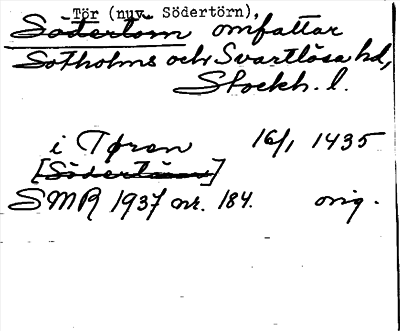 Tör (nuv. Södertörn),
Södertörn omfattar
Sotholms och Svartlösa hd,
Stockh. l.
i Tøren 16/1 1435
[Södertörn]
SMR 1937 nr. 184. orig.